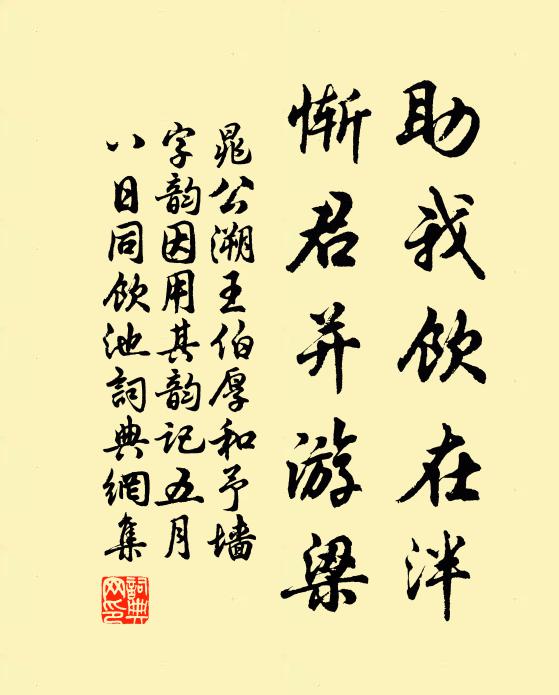 助我饮在泮
惭君并游梁
晁公溯王伯厚和予墙
字韵因用其韵记五月
八日同饮池詞典網集
詞典网印